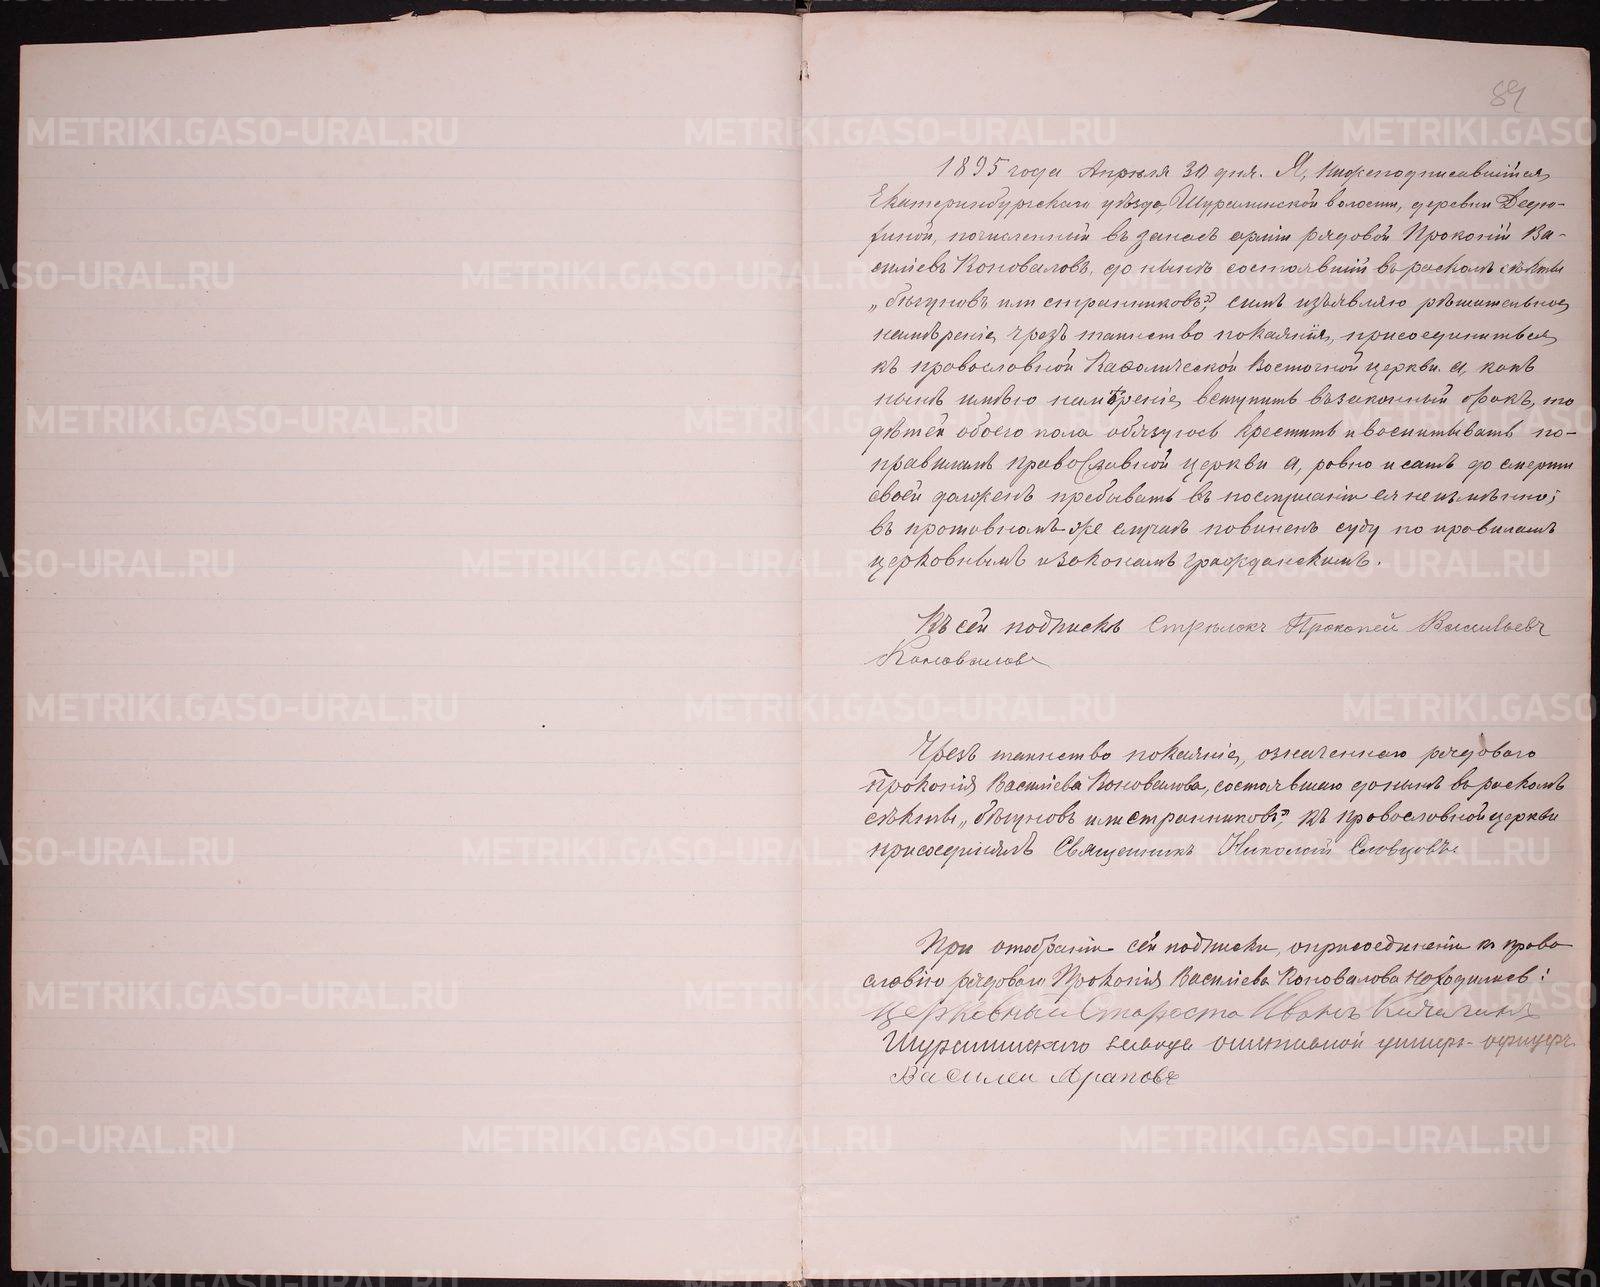 89
1895 года Апреля 30 дня. Я, нижеподписавшійся,
Екатеринбургскаго уѣзда, Шуралинской волости, деревни
финой, почисленный въ запасъ арміи рядовой Прокопій Ва-
силіевъ Коноваловъ, до нынѣ состоявшій въ расколѣ сѣкты
„бѣгуновъ или странниковъ", симъ изъявляю рѣшительное
намѣреніе, чрезъ таинство покаянія, присоединиться
къ православной Каѳолической Восточной церкви. А, какъ
нынѣ имѣю намѣреніе, вступить въ законный бракъ, то
дѣтей обоего пола обязуюсь крестить и воспитывать по-
правиламъ православной церкви а, равно и самъ до смерти
своей долженъ пребывать въ послушаніи ея неизмѣнно;
въ противномъ-же случаѣ повиненъ суду по правиламъ
церковнымъ и законамъ гражданскимъ.
Къ сей подпискѣ Стрѣлокъ Прокопей Васильевъ
Коноваловъ
Чрезъ таинство покаянія, означеннаго рядоваго
Прокопія Василіева Коновалова, состоявшаго донынѣ въ расколѣ
сѣкты „бѣгуновъ или странниковъ", къ православной церкви
присоединялъ Священникъ Николай Словцовъ
При отобраніи сей подписки, о присоединеніи къ право
славію рядоваго Прокопія Василіева Коновалова находились:
Церковный Староста Иванъ
Шуралинскаго завода унтеръ-офицеръ
Василей Араповъ
METRIKI.GASO-URAL.RU